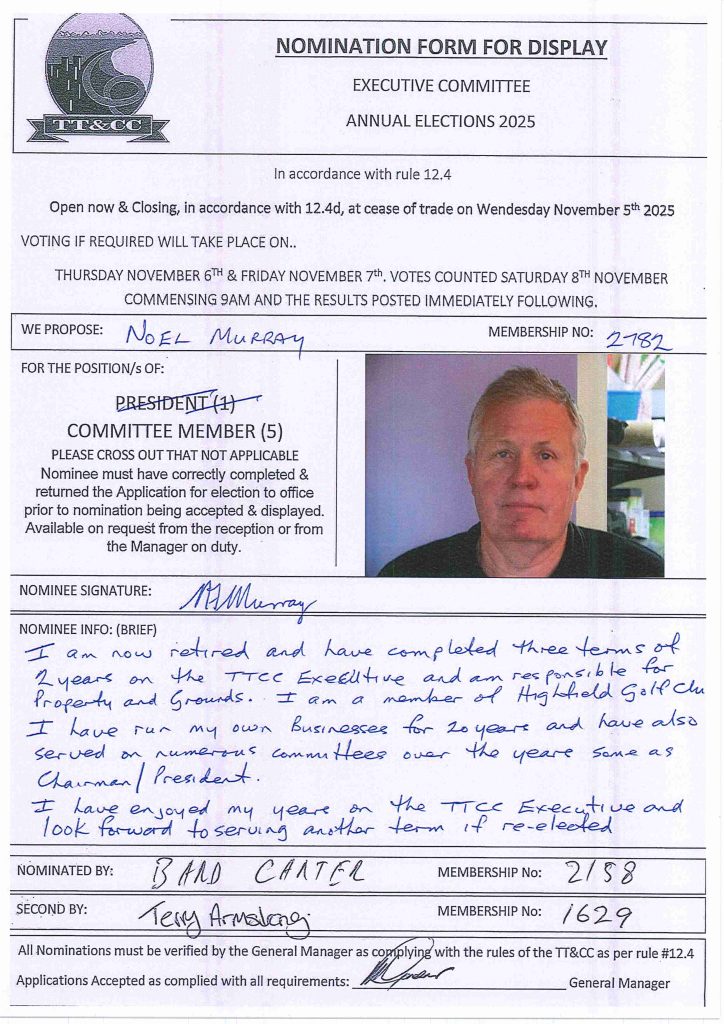 NOMINATION FORM FOR DISPLAY
EXECUTIVE COMMITTEE
ANNUAL ELECTIONS 2025
TT&CC
In accordance with rule 12.4
Open now & Closing, in accordance with 12.4d, at cease of trade on Wendesday November 5th 2025
VOTING IF REQUIRED WILL TAKE PLACE ON..
THURSDAY NOVEMBER 6TH & FRIDAY NOVEMBER 7th. VOTES COUNTED SATURDAY 8TH NOVEMBER
COMMENSING 9AM AND THE RESULTS POSTED IMMEDIATELY FOLLOWING.
WE PROPOSE: NOEL MURRAY MEMBERSHIP NO: 2782
FOR THE POSITION/s OF:
PRESIDENT (1)
COMMITTEE MEMBER (5)
PLEASE CROSS OUT THAT NOT APPLICABLE
Nominee must have correctly completed &
returned the Application for election to office
prior to nomination being accepted & displayed.
Available on request from the reception or from
the Manager on duty.
NOMINEE SIGNATURE: Murray
NOMINEE INFO: (BRIEF)
I am now retired and have completed three terms of
2 years on the TTCC Executive and am responsible for
Property and Grounds. I am a member of Highfield Golf Clu
I have run my own Businesses for 20 years and have also
served on numerous committees over the years some as
Chairman/President.
I have enjoyed my years on the TTCC Executive and
look forward to serving another term if re-elected
NOMINATED BY: CARTER MEMBERSHIP No: 2158
SECOND BY: Terry Armstrong. MEMBERSHIP No: 1629
All Nominations must be verified by the General Manager as complying with the rules of the TT&CC as per rule #12.4
Applications Accepted as complied with all requirements: General Manager